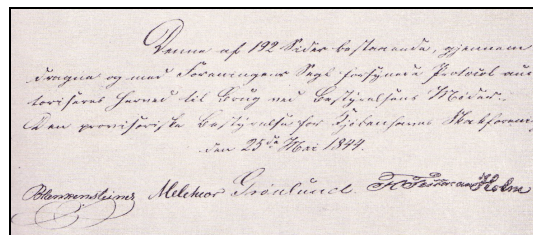 Denne af 192 Sider bestaaende, gjennem
dragne og med Foreningens Segl forsynede Protocol auc
toriseres herved til Brug ved Bestyrelsens Møder.
Den provisoriske Bestyrelse for Kjøbenhavns Skakforening
den 25de Mai 1844.
Blankensteiner Melchior Grønlund Holm